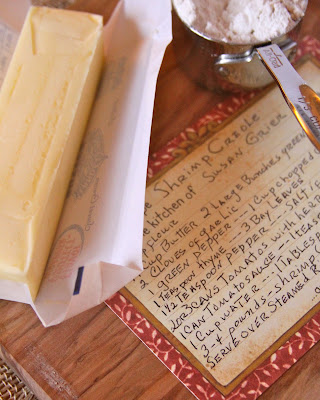 Shrimp Creole
kitchen of Susan Grier
flour
Cup Butter 2 Large Bunches green
2 Cloves of garlic 1 Cup chopped
green Pepper --- 3 Bay Leaves
Teaspoon thyme
1/2 Teaspoon pepper Salt
2 or 3 Cans Tomatos with herb
1 Can Tomato Sauce -- 1 Teas
1 Cup Water --- 1 Tables
3-4 pounds -- Shrimp
Serve over Steamed R